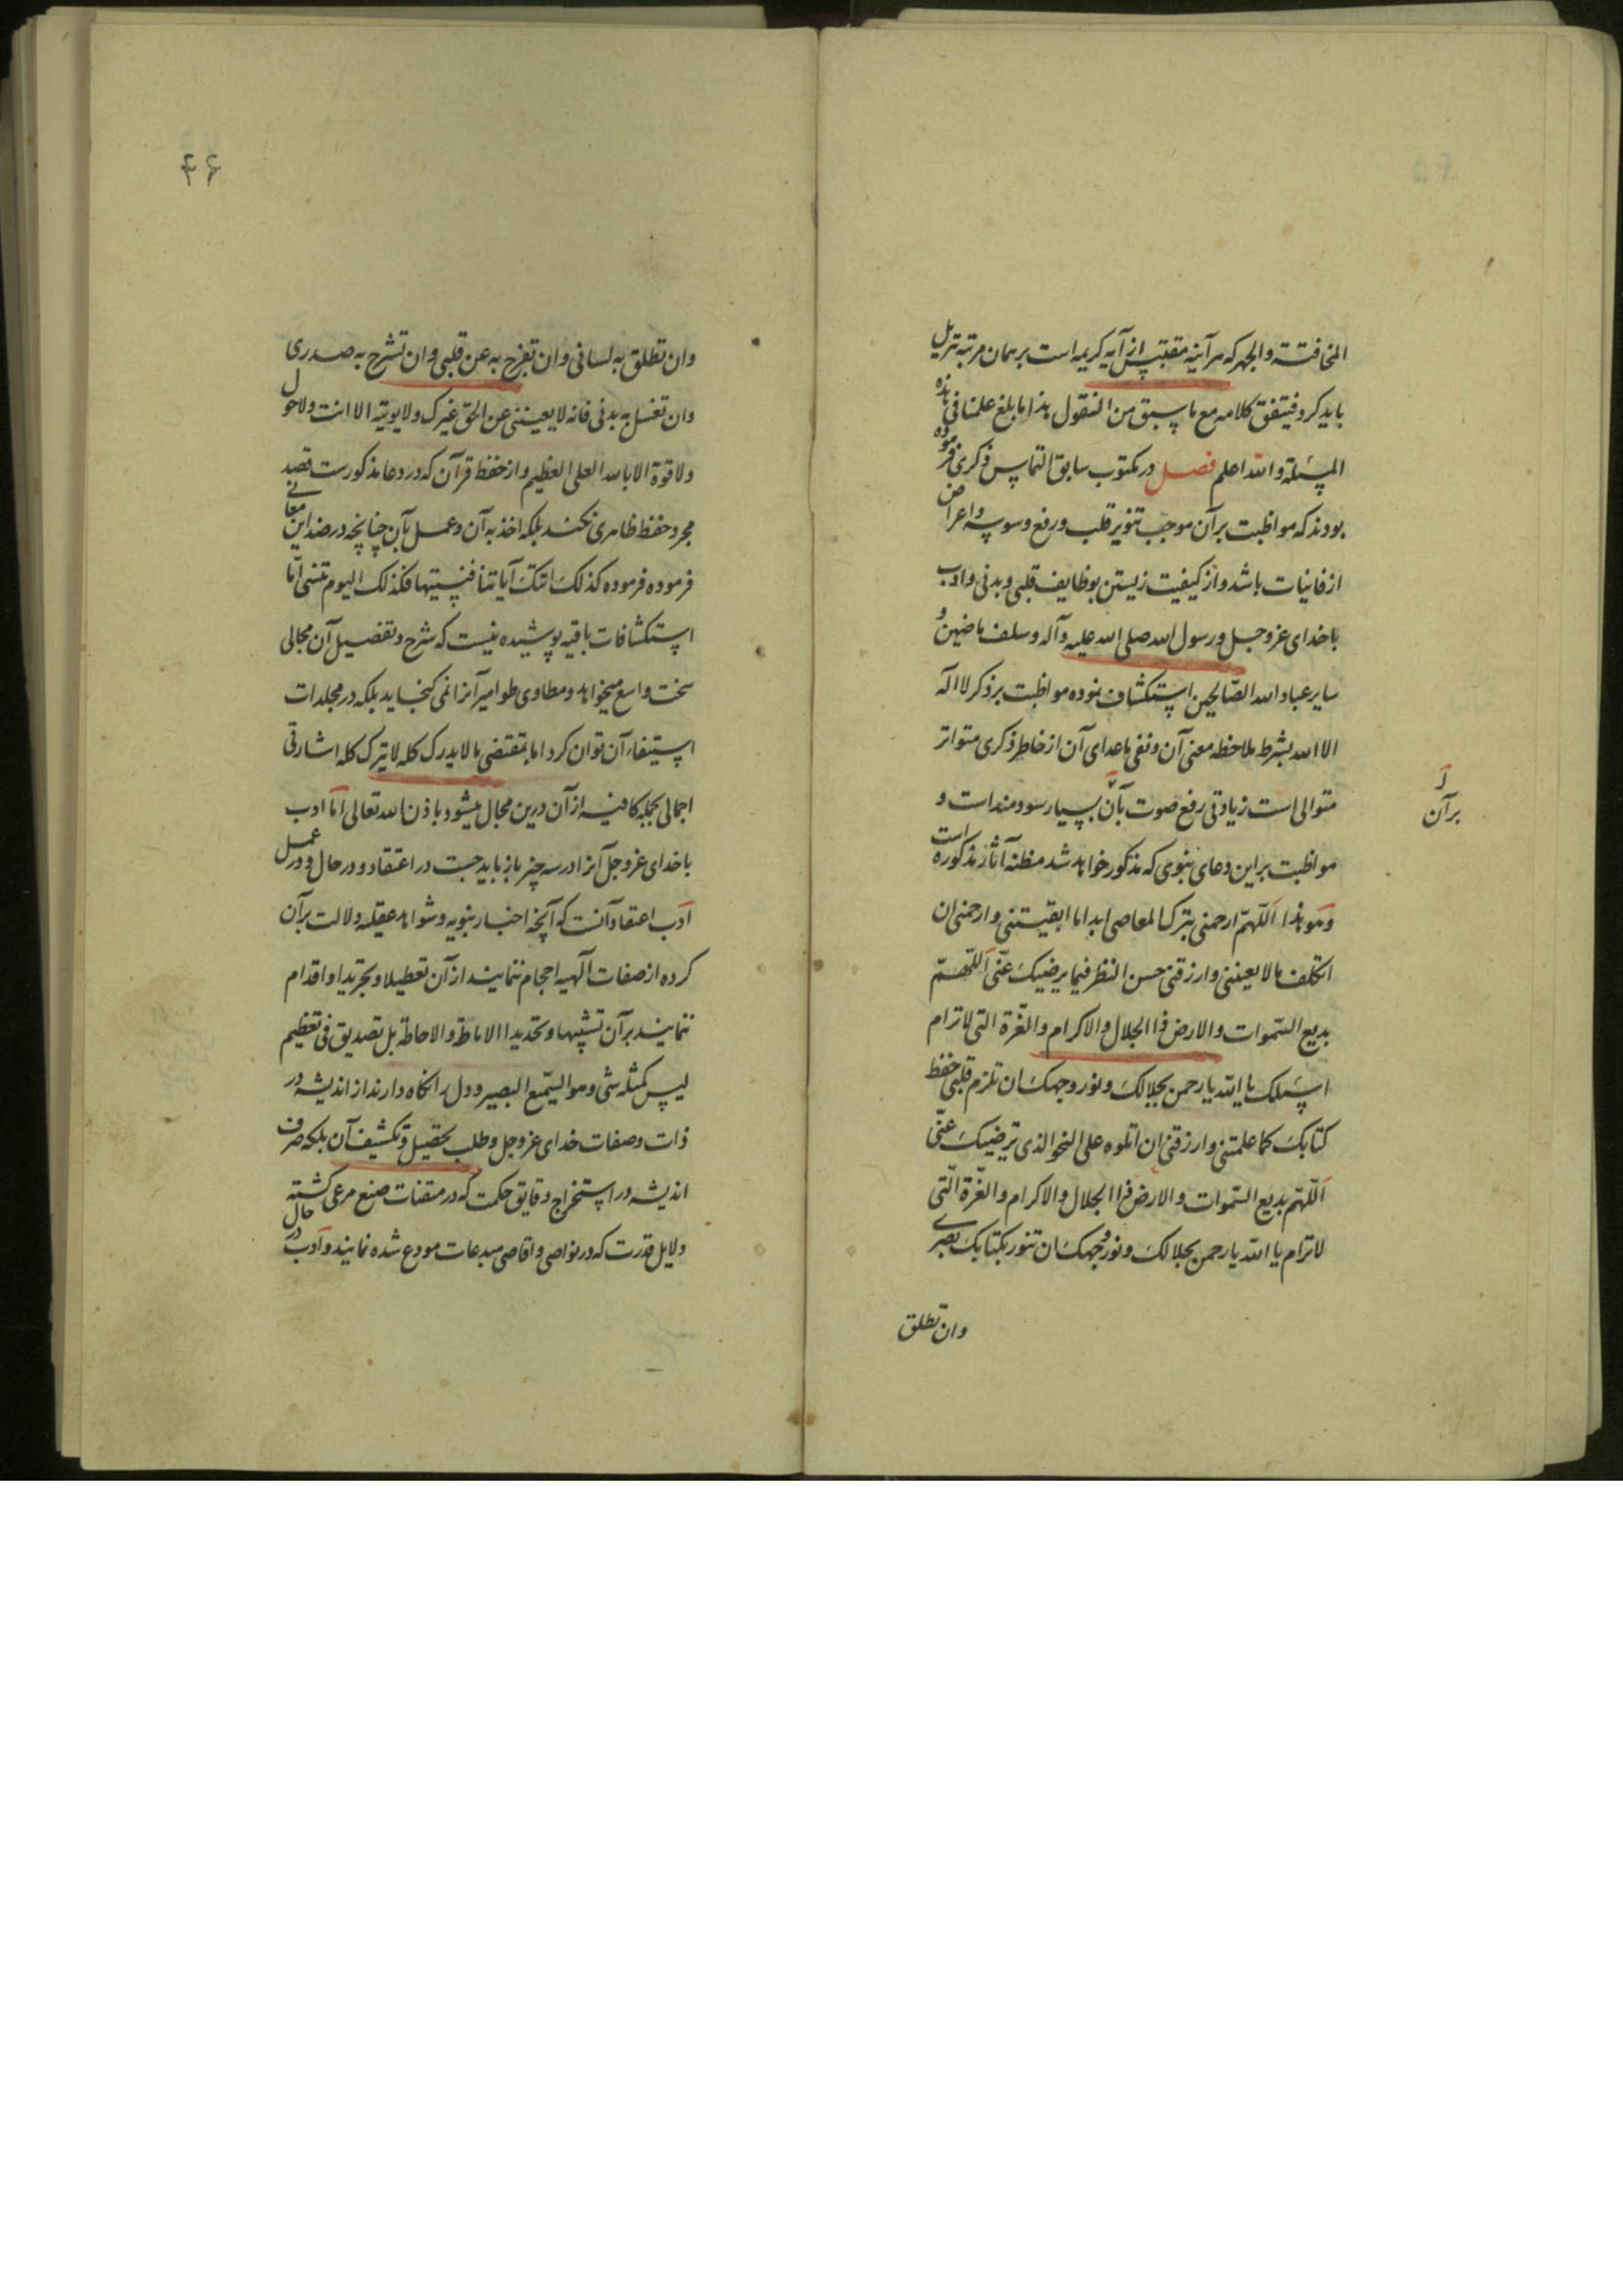 المخافتة والجهر که هر آینه مقتبس از آیه کریمه است بر همان مرتبه تنزیل
باید کرد فیتفق کلامه مع ما سبق من النقول هذا ما بلغ علمنا فی هذه
المسئلة والله اعلم فصل در مکتوب سابق التماس ذکری فرموده
بودند که مواظبت بر آن موجب تنویر قلب و رفع وسوسه و اعراض
از فانیات باشد و از کیفیت زیستن بوظایف قلبی و بدنی و ادب
با خدای عز و جل و رسول الله صلی الله علیه وآله و سلف ماضین و
سایر عباد الله الصّالحین استکشاف نموده مواظبت بر ذکر لا اله
الا الله بشرط ملاحظه معنی آن و نفی ماعدای آن از خاطر ذکری متواتر
متوالی است زیادتی رفع صوت بآن بسیار سودمند است و
بر آن
مواظبت بر این دعای نبوی که مذکور خواهد شد مظنه آثار مذکوره است
و هو هذا اَللّهمّ ارحمنی بترک المعاصی ابدا ما ابقیتنی و ارحمنی ان
اتکلف ما لا یعیننی وارزقنی حسن النظر فیما یرضیکَ عنّی اَللّهمّ
بدیع السّموات والارض ذا الجلال والاکرام والعزّة التی لا ترام
اسئلک یا الله یا رحمن بجلالکَ و نور وجهکَ ان تلزم قلبی حفظ
کتابکَ کما علمتنی وارزقنی ان اتلوه علی النحو الذی یرضیکَ عنّی
اَللّهمّ بدیع السّموات والارض ذا الجلال والاکرام والعزّة الّتی
لا ترام یا الله یا رحمن بجلالکَ و نور وجهکَ ان تنور بکتابکَ بصری
وان تطلق
۴۶
وان تطلق به لسانی وان تفرج به عن قلبی وان تشرح به صدری
وان تغسل به بدنی فانه لا یعیننی عن الحق غیرک ولا یوتیه الا انت ولا حول
ولا قوة الا بالله العلی العظیم و از حفظ قرآن که در دعا مذکورست قصد
مجرد حفظ ظاهری نکنند بلکه اخذ به آن و عمل بآن چنانچه در ضد این معانی
فرموده فرموده کذلکَ اتتکَ آیاتنا فنسیتها فکذلک الیوم تنسی امّا
استکشافات باقیه پوشیده نیست که شرح و تفصیل آن مجالی
سخت واسع میخواهد و مطاوی طوامیر آنرا نمی کنجاید بلکه در مجلدات
استیفاء آن توان کرد اما بمقتضی ما لا یدرک کله لا یترک کله اشارتی
اجمالی بجمله کافیه از آن درین مجال میشود باذن الله تعالی امّا ادب
با خدای عز و جل آنرا در سه چیز باز باید جست در اعتقاد و در حال و در عمل
اَدب اعتقاد آنست که آنچه اخبار نبویه و شواهد عقلیه دلالت بر آن
کرده از صفات الهیه احجام ننمایند از آن تعطیلا و تجریدا و اقدام
ننمایند بر آن تشبیها و تحدیدا الاماطة والاحاطة بل تصدیق فی تعظیم
لیس کمثله شی و هو السّمیع البصیر و دل را نکاه دارند از اندیشه در
ذات و صفات خدای عز و جل و طلب تحصیل و تکشیف آن بلکه صرف
اندیشه در استخراج دقایق حکمت که در متقنات صنع مرعی کشته
دلایل قدرت که در نواصی و اقاصی مبدعات مودع شده نمایند و اَدب در حال